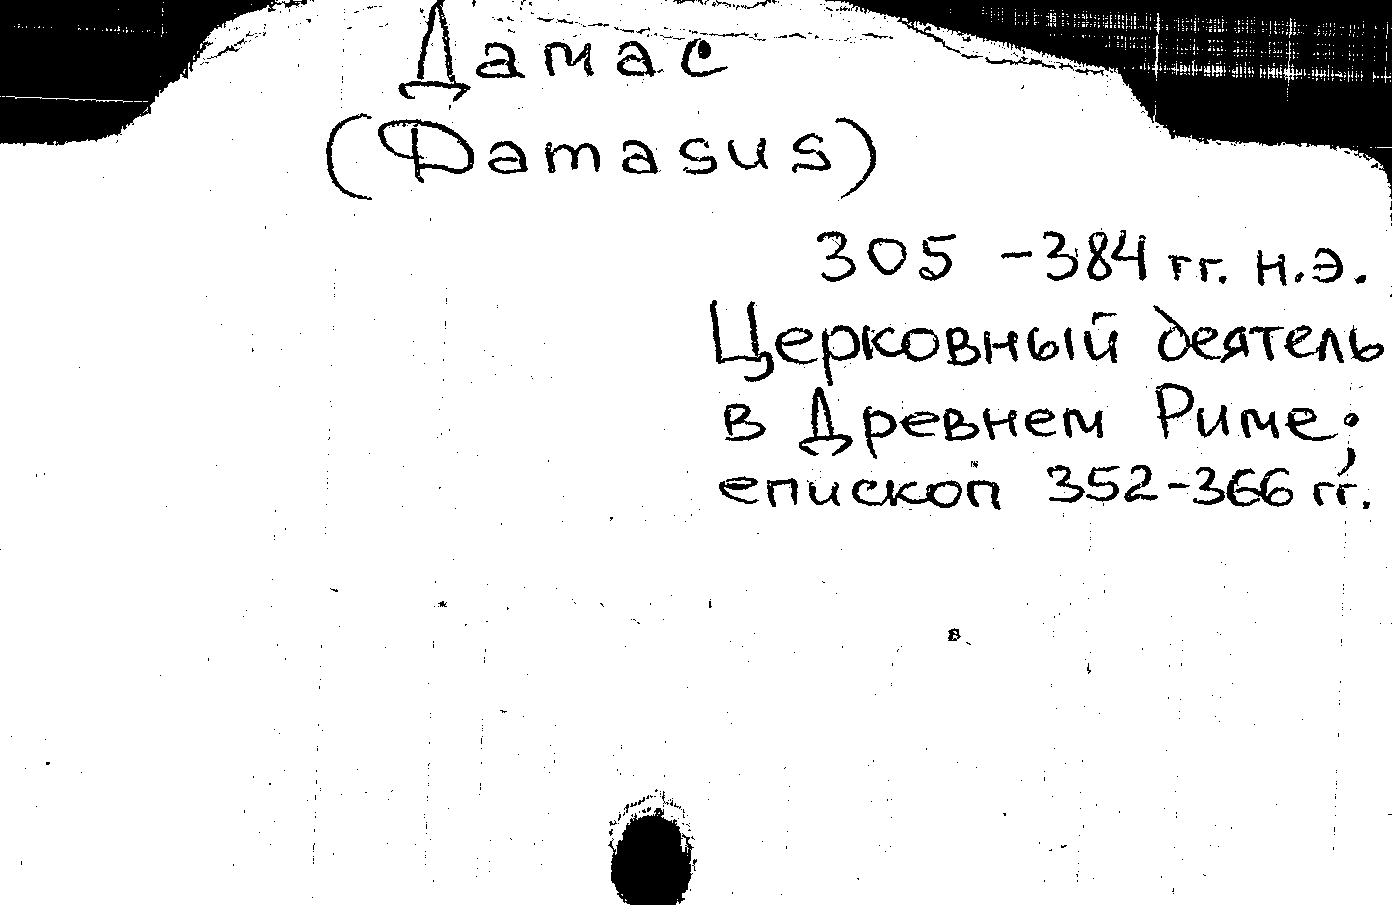 Дамас
(Damasus)
305 - 384 гг. н.э.
Церковный деятель
в Древнем Риме;
епископ 352-366 гг.